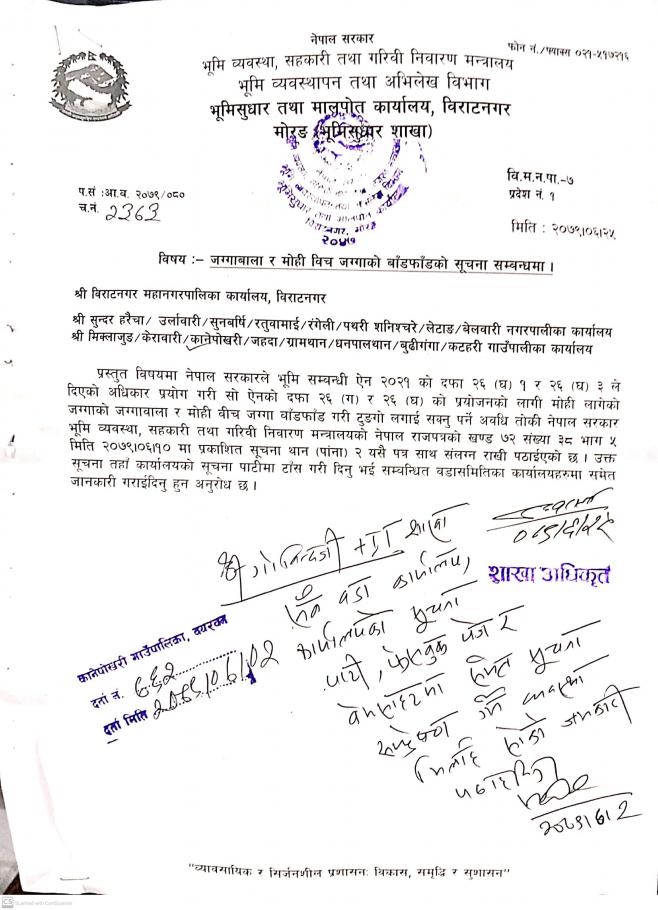 नेपाल सरकार
फोन नं./फ्याक्स ०२१-५१७२१६
भूमि व्यवस्था, सहकारी तथा गरिवी निवारण मन्त्रालय
भूमि व्यवस्थापन तथा अभिलेख विभाग
भूमिसुधार तथा मालपोत कार्यालय, विराटनगर
मोरङ (भूमिसुधार शाखा)
वि.म.न.पा.-७
प्रदेश नं. १
प.सं :आ.व. २०७९/०८०
च.नं. 2363
विराटनगर, मोरङ
२०४७
मिति : २०७९।०६।२५
विषय :– जग्गाबाला र मोही विच जग्गाको बाँडफाँडको सूचना सम्बन्धमा ।
श्री विराटनगर महानगरपालिका कार्यालय, विराटनगर
श्री सुन्दर हरैचा/ उर्लावारी/सुनबर्षि/रतुवामाई/रंगेली/पथरी शनिश्चरे/लेटाङ/बेलवारी नगरपालीका कार्यालय
श्री मिक्लाजुङ/केरावारी/कानेपोखरी/जहदा/ग्रामथान/धनपालथान/बुढीगंगा/कटहरी गाउँपालीका कार्यालय
प्रस्तुत विषयमा नेपाल सरकारले भूमि सम्बन्धी ऐन २०२१ को दफा २६ (घ) १ र २६ (घ) ३ ले
दिएको अधिकार प्रयोग गरी सो ऐनको दफा २६ (ग) र २६ (घ) को प्रयोजनको लागी मोही लागेको
जग्गाको जग्गावाला र मोही वीच जग्गा वाँडफाँड गरी टुङगो लगाई सक्नु पर्ने अवधि तोकी नेपाल सरकार
भूमि व्यवस्था, सहकारी तथा गरिवी निवारण मन्त्रालयको नेपाल राजपत्रको खण्ड ७२ संख्या ३८ भाग ५
मिति २०७९।०६।१० मा प्रकाशित सूचना थान (पांना) २ यसै पत्र साथ संलग्न राखी पठाईएको छ । उक्त
सूचना तहाँ कार्यालयको सूचना पाटीमा टाँस गरी दिनु भई सम्बन्धित वडासमितिका कार्यालयहरुमा समेत
जानकारी गराईदिनु हुन अनुरोध छ ।
शाखा अधिकृत
वडा कार्यालय,
कार्यालयको सूचना
पाटी, फेसबुक पेज र
वेभसाईटमा समेत सूचना
कानेपोखरी गाउँपालिका,
दर्ता नं. ६६२
दर्ता मिति
"व्यावसायिक र सिर्जनशील प्रशासन: विकास, समृद्धि र सुशासन"
CS Scanned with CamScanner